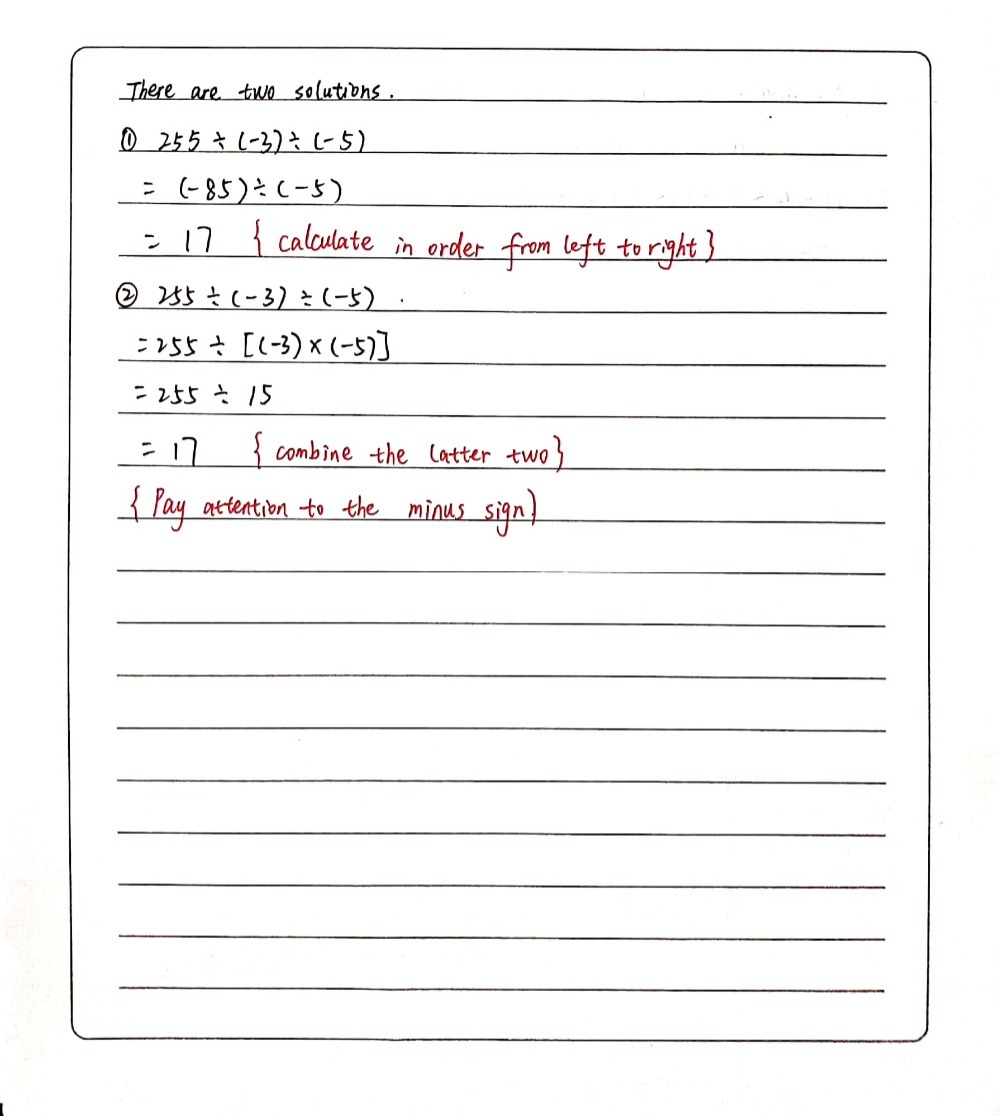 There are two solutions.
① 255 ÷ (-3) ÷ (-5)
= (-85) ÷ (-5)
= 17 { calculate in order from left to right }
② 255 ÷ (-3) ÷ (-5)
= 255 ÷ [(-3) × (-5)]
= 255 ÷ 15
= 17 { combine the latter two }
{ Pay attention to the minus sign )